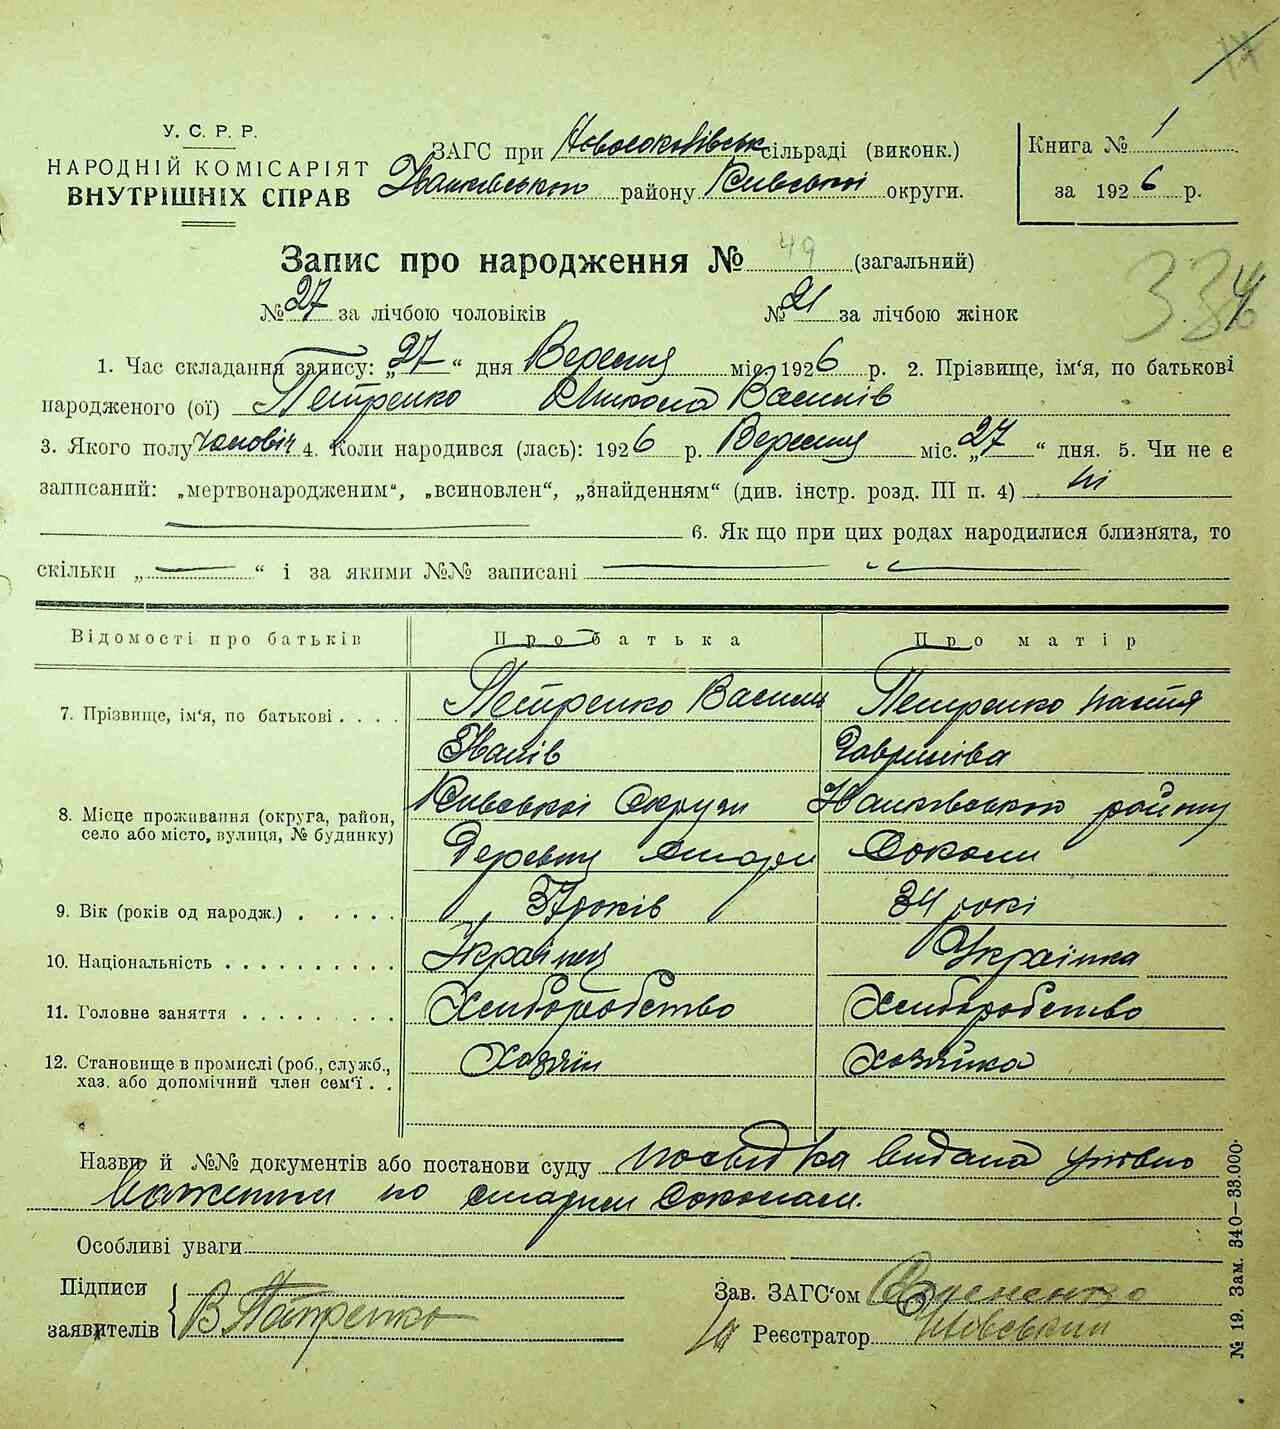 17
У. С. Р. Р.
НАРОДНІЙ КОМІСАРІЯТ
ВНУТРІШНІХ СПРАВ
ЗАГС при Новосоколівськ сільраді (виконк.)
Іванківського району Київської округи.
Книга № 1
за 1926 р.
Запис про народження № 49 (загальний)
334
№ 27 за лічбою чоловіків № 21 за лічбою жінок
1. Час складання запису: „27“ дня Вересня міс. 1926 р. 2. Прізвище, ім‘я, по батькові
народженого (ої) Петренко Микола Василів
3. Якого полу чоловіч 4. Коли народився (лась): 1926 р. Вересня міс. „27“ дня. 5. Чи не є
записаний: „мертвонародженим“, „всиновлен“, „знайденням“ (див. інстр. розд. III п. 4) ні
6. Як що при цих родах народилися близнята, то
скільки „—“ і за якими №№ записані
Відомості про батьків Про батька Про матір
7. Прізвище, ім‘я, по батькові . . . . Петренко Василь Петренко Настя
Іванів Гаврилова
8. Місце проживання (округа, район, село або місто, вулиця, № будинку) Київської Округи Іванковського району
Деревня Стари Соколи
9. Вік (років од народж.) . . . . . . 37 років 34 рокі
10. Національність . . . . . . . . . . Українец Українка
11. Головне заняття . . . . . . . . . Хлиборобство Хлиборобство
12. Становище в промислі (роб., служб., хаз. або допомічний член сем‘ї . . Хозяін Хозяйка
Назви й №№ документів або постанови суду посвідка видана
по старим Соколам.
Особливі уваги
Підписи
заявителів
В Петренко
Зав. ЗАГС‘ом
Реєстратор
№ 19. Зам. 340—33.000.